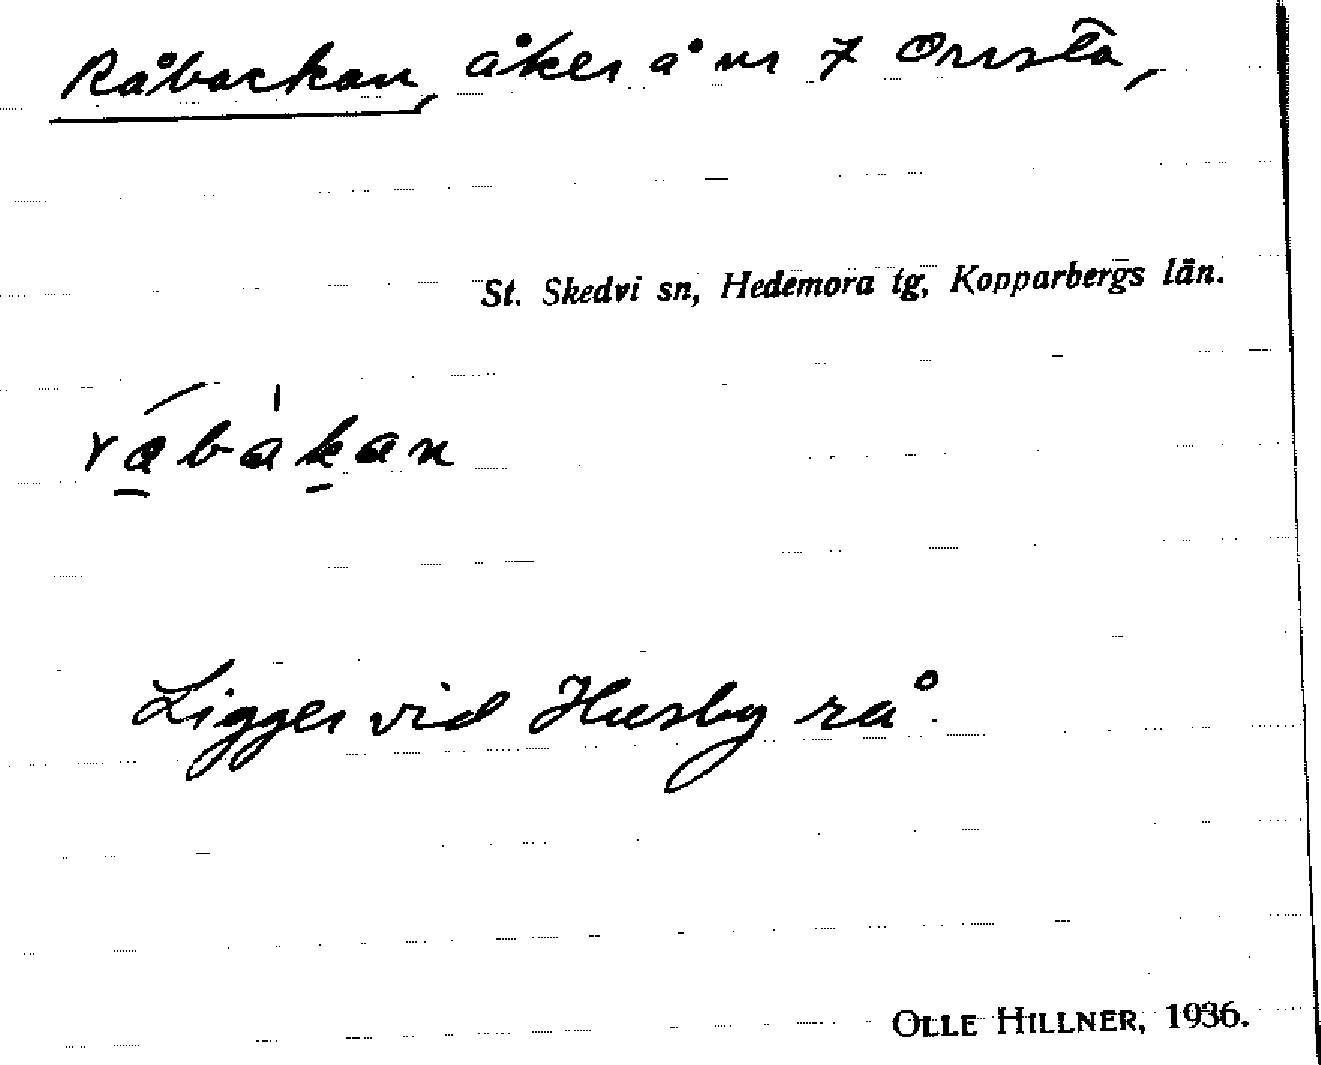 Råbackan, åker å nr 7 Orrsta,
St. Skedvi sn, Hedemora tg, Kopparbergs län.
råbakan
Ligger vid Husby rå.
OLLE HILLNER, 1936.